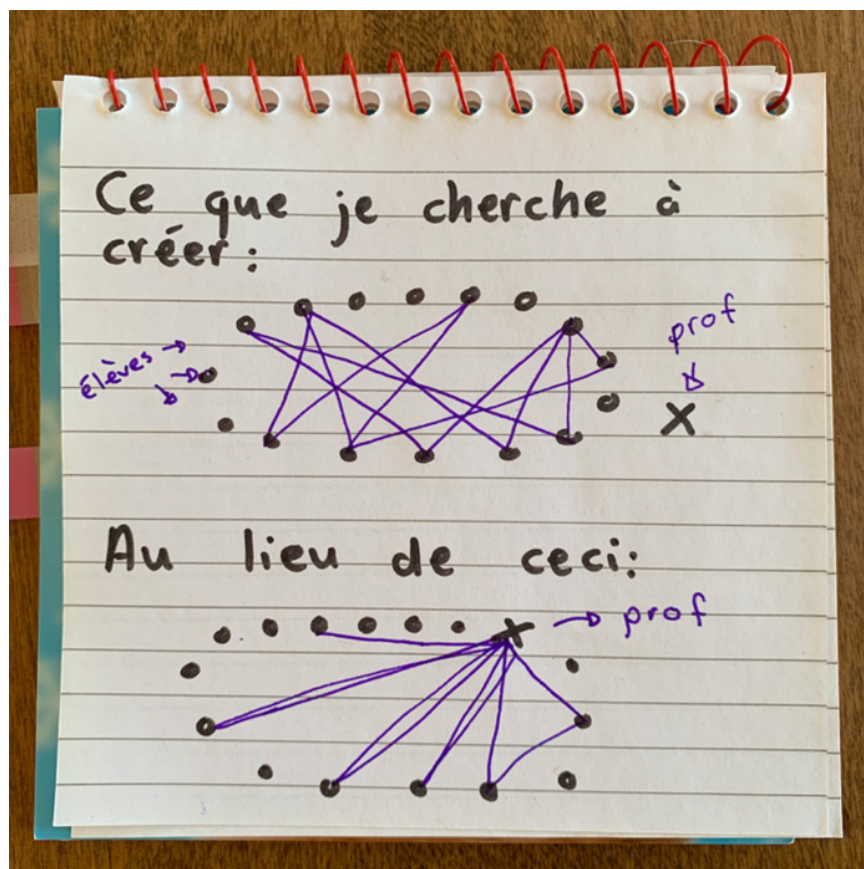 Ce que je cherche à
créer:
prof
élèves
Au lieu de ceci:
prof